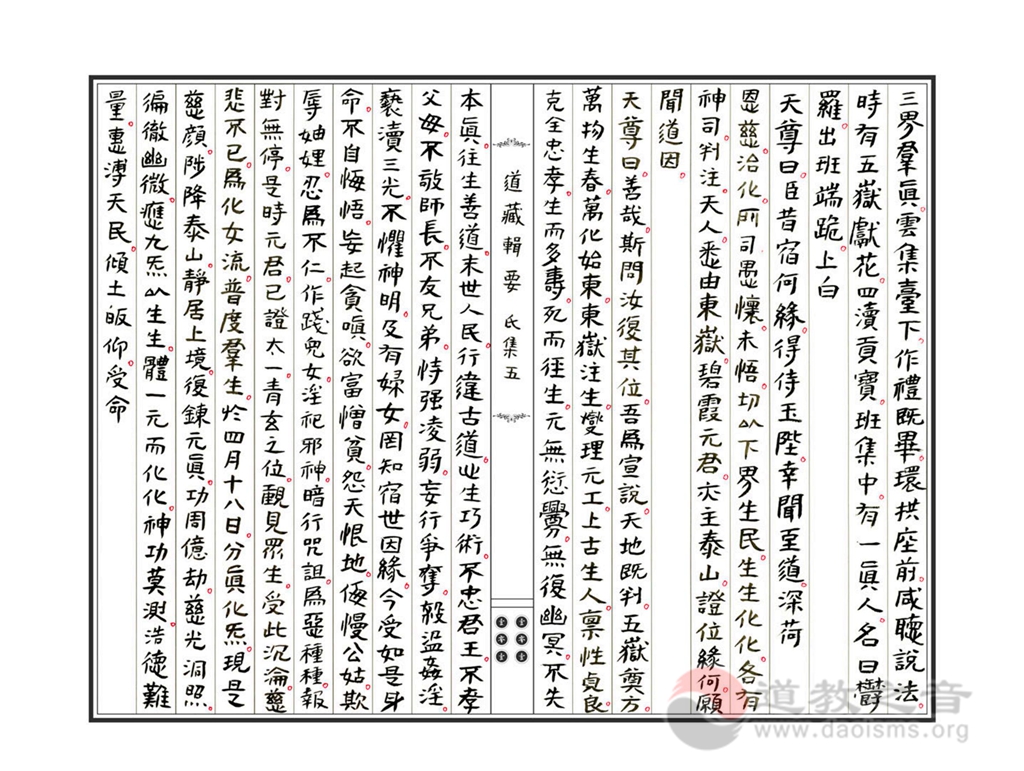 三界羣眞雲集臺下作禮既畢環拱座前咸聽說法
時有五嶽獻花四瀆貢寶班集中有一眞人名曰欝
羅出班端跪上白
天尊曰臣昔宿何緣得侍玉陛幸聞至道深荷
恩慈治化所司愚懷未悟切以下界生民生生化化各有
神司判注天人悉由東嶽碧霞元君亦主泰山證位緣何願
聞道因
天尊曰善哉斯問汝復其位吾爲宣說天地既判五嶽奠方
萬物生春萬化始東東嶽注生燮理元工上古生人禀性貞良
克全忠孝生而多壽死而往生元無愆釁無復幽冥不失
道藏輯要 氐集五
本眞往生善道末世人民行違古道此生巧術不忠君王不孝
父母不敬師長不友兄弟恃强凌弱妄行爭奪殺盜姦淫
褻瀆三光不懼神明及有婦女罔知宿世因緣今受如是身
命不自悔悟妄起貪嗔欲富憎貧怨天恨地侮慢公姑欺
辱妯娌忍爲不仁作踐兒女淫祀邪神暗行咒詛爲惡種種報
對無停是時元君已證太一青玄之位觀見眾生受此沉淪慈
悲不已爲化女流普度羣生於四月十八日分眞化炁現是之
慈顏陟降泰山靜居上境復鍊元眞功周億劫慈光洞照
徧徹幽微應九炁以生生體一元而化化神功莫測浩德難
量惠溥天民傾土皈仰受命
道教之音
www.daoisms.org